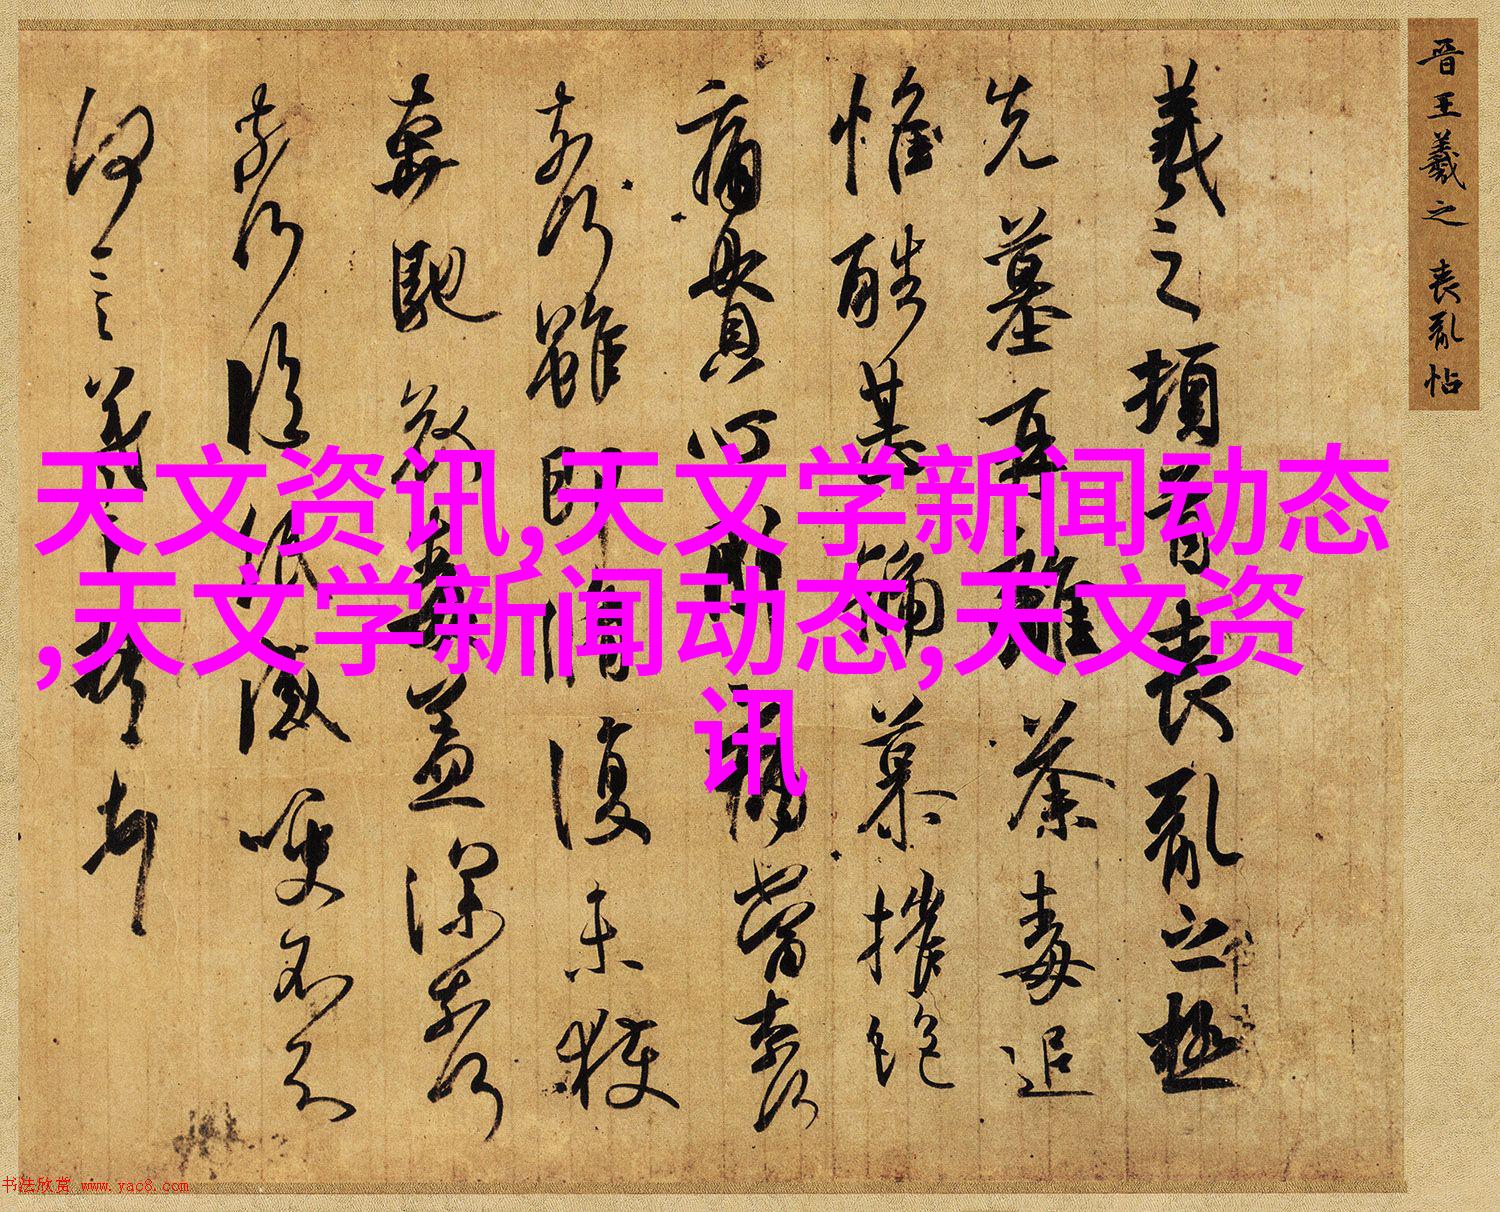 晋王羲之 喪亂帖
羲之頓首喪亂之極
先墓再離荼毒追
惟酷甚號慕摧絕
痛貫心肝痛當奈何
奈何雖即脩復未獲
奔馳哀毒益深奈何
奈何臨紙感哽不知
何言羲之頓首頓首
天文资讯,天文学新闻动态
,天文学新闻动态,天文资
讯
书法欣赏 www.yac8.com